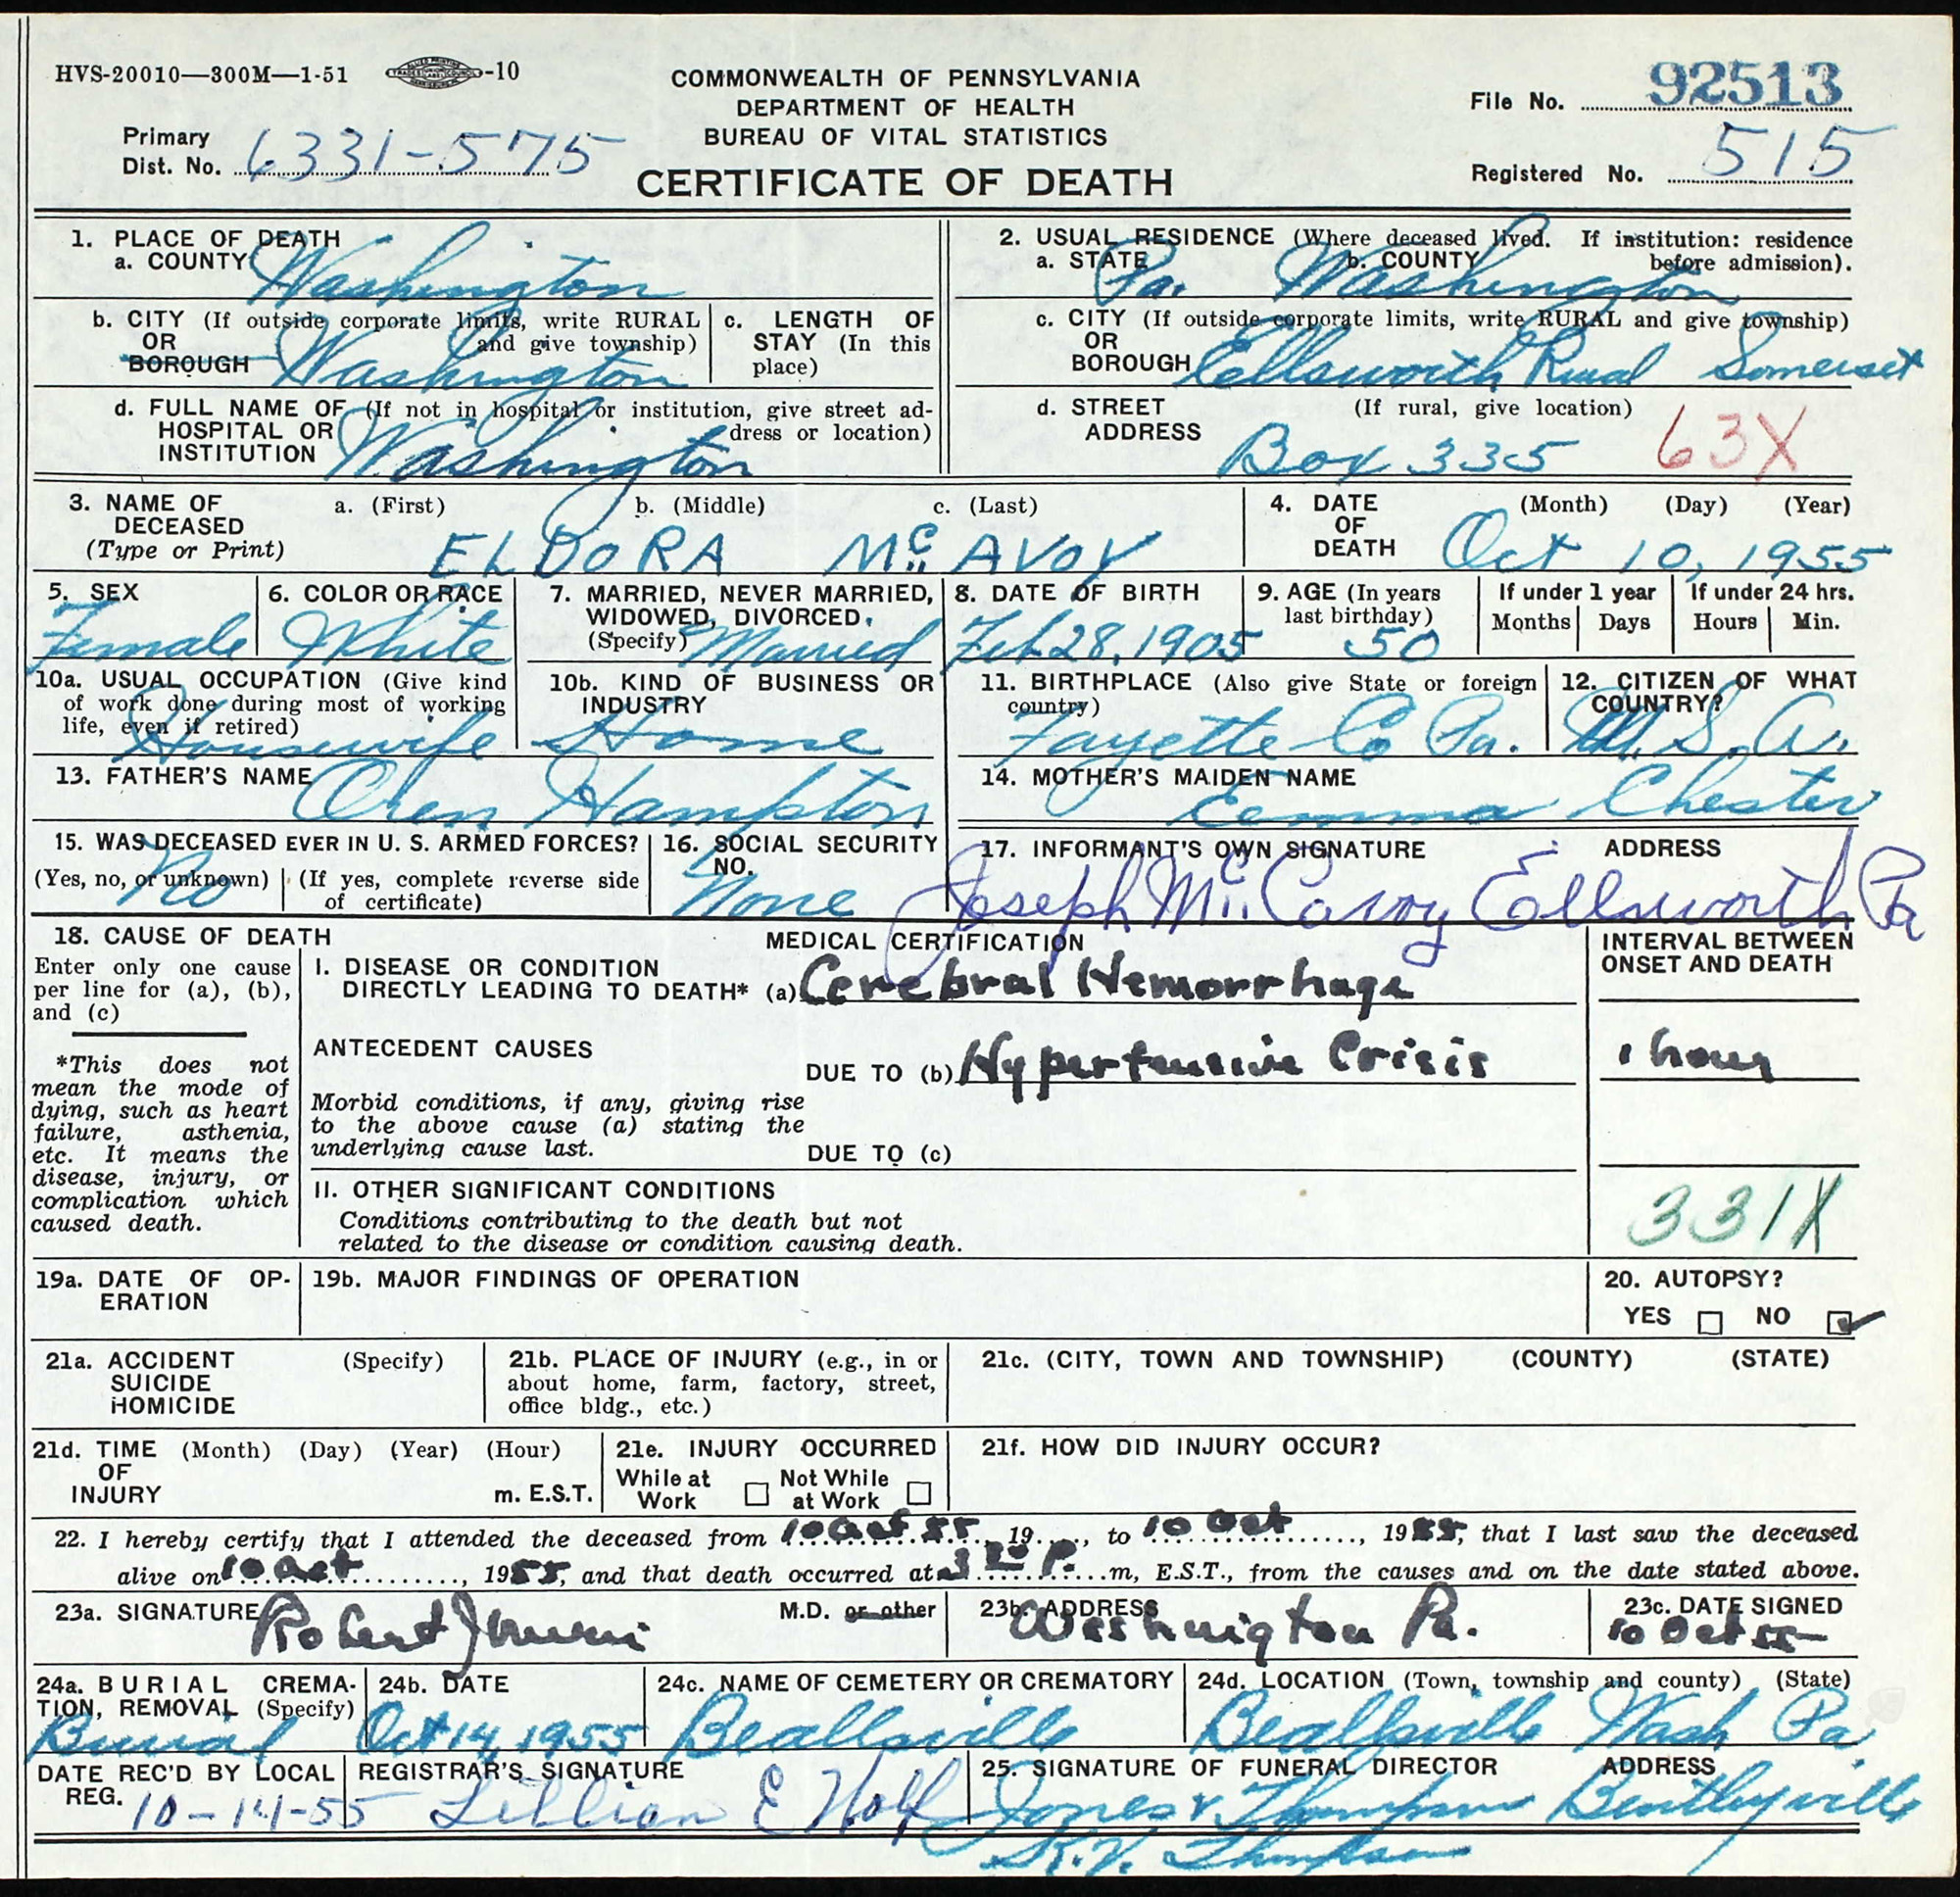 HVS-20010—300M—1-51 -10
COMMONWEALTH OF PENNSYLVANIA
DEPARTMENT OF HEALTH
BUREAU OF VITAL STATISTICS
CERTIFICATE OF DEATH
File No. 92513
Primary Dist. No. 6331-575
Registered No. 515
1. PLACE OF DEATH
a. COUNTY Washington
2. USUAL RESIDENCE (Where deceased lived. If institution: residence before admission).
a. STATE Pa. b. COUNTY Washington
b. CITY (If outside corporate limits, write RURAL and give township)
OR
BOROUGH Washington
c. LENGTH OF STAY (In this place)
c. CITY (If outside corporate limits, write RURAL and give township)
OR
BOROUGH Ellsworth Rural Somerset
d. FULL NAME OF (If not in hospital or institution, give street address or location)
HOSPITAL OR
INSTITUTION Washington
d. STREET ADDRESS (If rural, give location)
Box 335 63X
3. NAME OF DECEASED (Type or Print)
a. (First) b. (Middle) c. (Last)
ELDORA McAVOY
4. DATE OF DEATH (Month) (Day) (Year)
Oct 10, 1955
5. SEX
Female
6. COLOR OR RACE
White
7. MARRIED, NEVER MARRIED, WIDOWED, DIVORCED. (Specify) Married
8. DATE OF BIRTH
Feb 28, 1905
9. AGE (In years last birthday)
50
If under 1 year
Months Days
If under 24 hrs.
Hours Min.
10a. USUAL OCCUPATION (Give kind of work done during most of working life, even if retired)
Housewife
10b. KIND OF BUSINESS OR INDUSTRY
Home
11. BIRTHPLACE (Also give State or foreign country)
Fayette Co Pa.
12. CITIZEN OF WHAT COUNTRY?
U.S.A.
13. FATHER'S NAME
Oren Hampton
14. MOTHER'S MAIDEN NAME
Emma Chester
15. WAS DECEASED EVER IN U. S. ARMED FORCES?
(Yes, no, or unknown) (If yes, complete reverse side of certificate)
No
16. SOCIAL SECURITY NO.
None
17. INFORMANT'S OWN SIGNATURE ADDRESS
Joseph Mc Cavoy Ellsworth Pa
18. CAUSE OF DEATH
Enter only one cause per line for (a), (b), and (c)
*This does not mean the mode of dying, such as heart failure, asthenia, etc. It means the disease, injury, or complication which caused death.
MEDICAL CERTIFICATION
INTERVAL BETWEEN ONSET AND DEATH
I. DISEASE OR CONDITION
DIRECTLY LEADING TO DEATH* (a) Cerebral Hemorrhage
ANTECEDENT CAUSES
DUE TO (b) Hypertensive Crisis 1 hour
Morbid conditions, if any, giving rise to the above cause (a) stating the underlying cause last.
DUE TO (c)
II. OTHER SIGNIFICANT CONDITIONS
Conditions contributing to the death but not related to the disease or condition causing death.
331X
19a. DATE OF OPERATION
19b. MAJOR FINDINGS OF OPERATION
20. AUTOPSY?
YES NO
21a. ACCIDENT SUICIDE HOMICIDE (Specify)
21b. PLACE OF INJURY (e.g., in or about home, farm, factory, street, office bldg., etc.)
21c. (CITY, TOWN AND TOWNSHIP) (COUNTY) (STATE)
21d. TIME OF INJURY (Month) (Day) (Year) (Hour)
m. E.S.T.
21e. INJURY OCCURRED
While at Work Not While at Work
21f. HOW DID INJURY OCCUR?
22. I hereby certify that I attended the deceased from 10 Oct 55, 19...., to 10 Oct, 1955, that I last saw the deceased
alive on 10 Oct, 1955, and that death occurred at 3 20 P. m, E.S.T., from the causes and on the date stated above.
23a. SIGNATURE M.D. or other
Robert J
23b. ADDRESS
Washington Pa.
23c. DATE SIGNED
10 Oct 55
24a. BURIAL CREMATION, REMOVAL (Specify)
Burial
24b. DATE
Oct 14, 1955
24c. NAME OF CEMETERY OR CREMATORY
Beallsville
24d. LOCATION (Town, township and county) (State)
Beallsville Wash Pa.
DATE REC'D BY LOCAL REG.
10-14-55
REGISTRAR'S SIGNATURE
Lillian E
25. SIGNATURE OF FUNERAL DIRECTOR ADDRESS
Jones & Thompson Bentleyville
K.V. Thompson